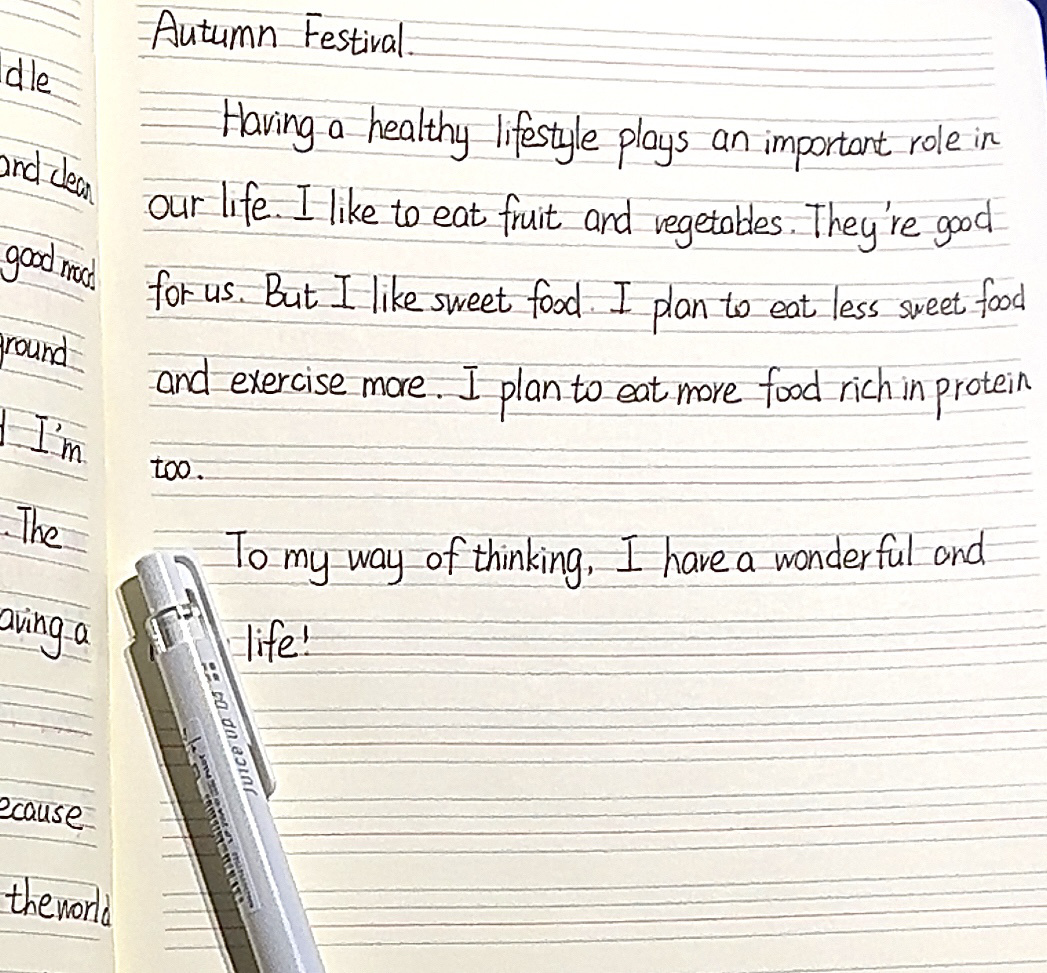 Autumn Festival.
Having a healthy lifestyle plays an important role in
our life. I like to eat fruit and vegetables. They're good
for us. But I like sweet food. I plan to eat less sweet food
and exercise more. I plan to eat more food rich in protein
too.
To my way of thinking, I have a wonderful and
life!
dle
and clean
good mood
round
I'm
. The
aving a
ecause
the world
JUICE UP 04